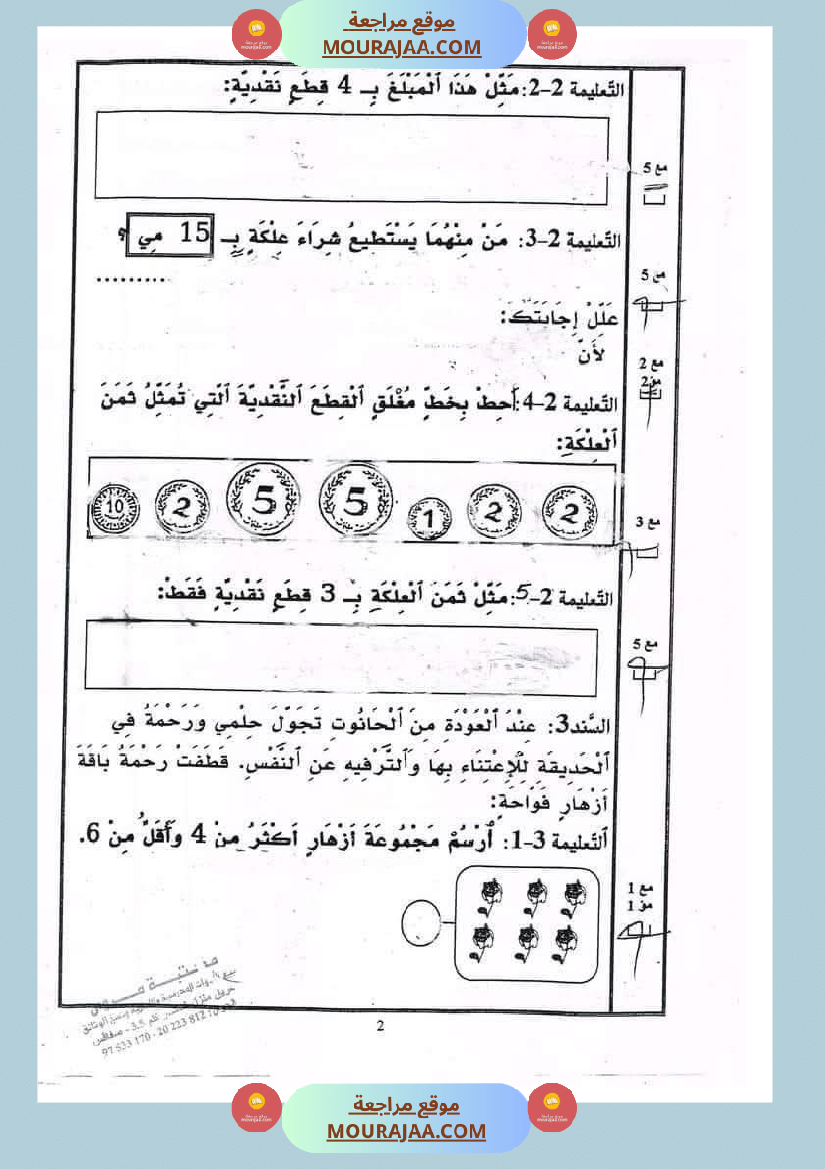 موقع مراجعة
MOURAJAA.COM
التّعليمة 2-2: مَثِّلْ هَذَا ٱلْمَبْلَغَ بِـ 4 قِطَعٍ نَقْدِيَّةٍ:
مع 5
التّعليمة 2-3: مَنْ مِنْهُمَا يَسْتَطِيعُ شِرَاءَ عِلْكَةٍ بِـ 15 مِي ؟
..........
مع 5
عَلِّلْ إِجَابَتَكَ:
لأَنَّ
مع 2
مز 2
التّعليمة 2-4: أَحِطْ بِخَطٍّ مُغْلَقٍ ٱلْقِطَعَ ٱلنَّقْدِيَّةَ ٱلَّتِي تُمَثِّلُ ثَمَنَ
ٱلْعِلْكَةِ:
10 2 5 5 1 2 2
مع 3
التّعليمة 2-5: مَثِّلْ ثَمَنَ ٱلْعِلْكَةِ بِـ 3 قِطَعٍ نَقْدِيَّةٍ فَقَطْ:
مع 5
السَّند3: عِنْدَ ٱلْعَوْدَةِ مِنَ ٱلْحَانُوتِ تَجَوَّلَ حِلْمِي وَرَحْمَةُ فِي
ٱلْحَدِيقَةِ لِلْاِعْتِنَاءِ بِهَا وَٱلتَّرْفِيهِ عَنِ ٱلنَّفْسِ. قَطَفَتْ رَحْمَةُ بَاقَةَ
أَزْهَارٍ فَوَّاحَةٍ:
ٱلتّعليمة 3-1: أُرْسُمْ مَجْمُوعَةَ أَزْهَارٍ أَكْثَرُ مِنْ 4 وَأَقَلُّ مِنْ 6.
مع 1
مز 1
2
97 533 170 - 20 223 812
موقع مراجعة
MOURAJAA.COM